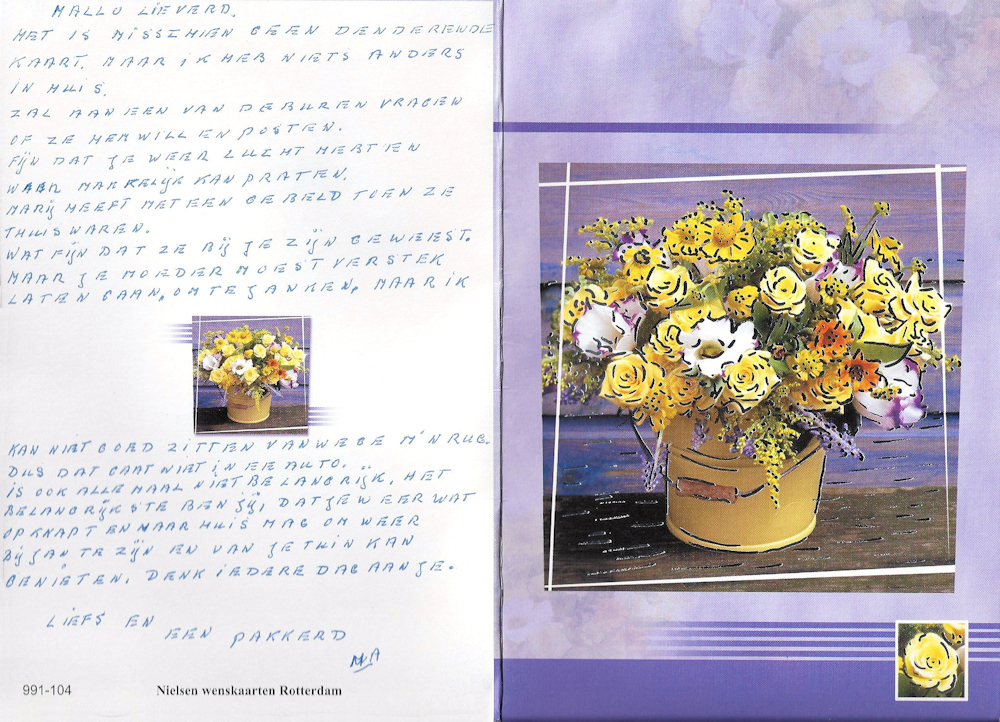 HALLO LIEVERD.
HET IS MISSCHIEN GEEN DENDERENDE
KAART. MAAR IK HEB NIETS ANDERS
IN HUIS.
ZAL AAN EEN VAN DE BUREN VRAGEN
OF ZE HEM WILLEN POSTEN.
FIJN DAT JE WEER LUCHT HEBT EN
WAAR MAKKELIJK KAN PRATEN.
MARIJ HEEFT METEEN GEBELD TOEN ZE
THUIS WAREN.
WAT FIJN DAT ZE BIJ JE ZIJN GEWEEST.
MAAR JE MOEDER MOEST VERSTEK
LATEN GAAN, OM TE JANKEN, MAAR IK
KAN NIET GOED ZITTEN VANWEGE M'N RUG.
DUS DAT GAAT NIET IN EE AUTO.
IS OOK ALLEMAAL NIET BELANGRIJK, HET
BELANGRIJKSTE BEN JIJ, DAT JE WEER WAT
OPKNAPT EN NAAR HUIS MAG OM WEER
BIJ JAN TE ZIJN EN VAN JE TUIN KAN
GENIETEN. DENK IEDERE DAG AAN JE.
LIEFS EN
EEN PAKKERD
MA
991-104 Nielsen wenskaarten Rotterdam